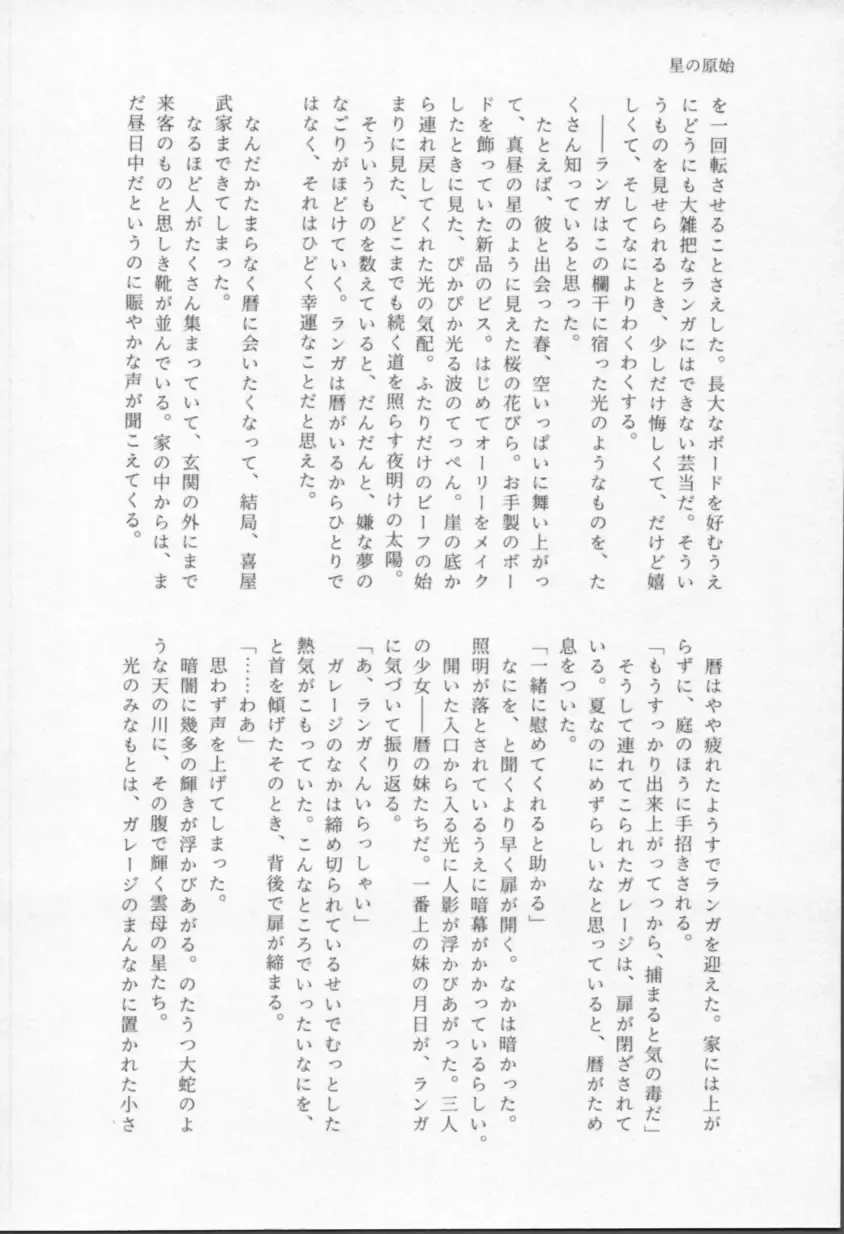 星の原始
を一回転させることさえした。長大なボードを好むうえ
にどうにも大雑把なランガにはできない芸当だ。そうい
うものを見せられるとき、少しだけ悔しくて、だけど嬉
しくて、そしてなによりわくわくする。
――ランガはこの欄干に宿った光のようなものを、た
くさん知っていると思った。
たとえば、彼と出会った春、空いっぱいに舞い上がっ
て、真昼の星のように見えた桜の花びら。お手製のボー
ドを飾っていた新品のビス。はじめてオーリーをメイク
したときに見た、ぴかぴか光る波のてっぺん。崖の底か
ら連れ戻してくれた光の気配。ふたりだけのビーフの始
まりに見た、どこまでも続く道を照らす夜明けの太陽。
そういうものを数えていると、だんだんと、嫌な夢の
なごりがほどけていく。ランガは暦がいるからひとりで
はなく、それはひどく幸運なことだと思えた。
なんだかたまらなく暦に会いたくなって、結局、喜屋
武家まできてしまった。
なるほど人がたくさん集まっていて、玄関の外にまで
来客のものと思しき靴が並んでいる。家の中からは、ま
だ昼日中だというのに賑やかな声が聞こえてくる。
暦はやや疲れたようすでランガを迎えた。家には上が
らずに、庭のほうに手招きされる。
「もうすっかり出来上がってっから、捕まると気の毒だ」
そうして連れてこられたガレージは、扉が閉ざされて
いる。夏なのにめずらしいなと思っていると、暦がため
息をついた。
「一緒に慰めてくれると助かる」
なにを、と聞くより早く扉が開く。なかは暗かった。
照明が落とされているうえに暗幕がかかっているらしい。
開いた入口から入る光に人影が浮かびあがった。三人
の少女――暦の妹たちだ。一番上の妹の月日が、ランガ
に気づいて振り返る。
「あ、ランガくんいらっしゃい」
ガレージのなかは締め切られているせいでむっとした
熱気がこもっていた。こんなところでいったいなにを、
と首を傾げたそのとき、背後で扉が締まる。
「……わあ」
思わず声を上げてしまった。
暗闇に幾多の輝きが浮かびあがる。のたうつ大蛇のよ
うな天の川に、その腹で輝く雲母の星たち。
光のみなもとは、ガレージのまんなかに置かれた小さ